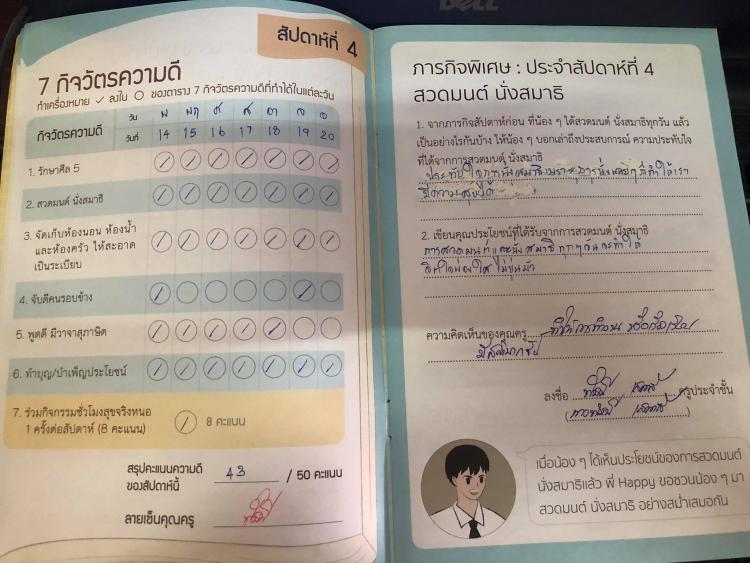 DELL
สัปดาห์ที่ 4
7 กิจวัตรความดี
ทำเครื่องหมาย ✓ ลงใน ○ ของตาราง 7 กิจวัตรความดีที่ทำได้ในแต่ละวัน
กิจวัตรความดี
วัน พ พฤ ศ ส อา จ อ
วันที่ 14 15 16 17 18 19 20
1. รักษาศีล 5
2. สวดมนต์ นั่งสมาธิ
3. จัดเก็บห้องนอน ห้องน้ำ
และห้องครัว ให้สะอาด
เป็นระเบียบ
4. จับดีคนรอบข้าง
5. พูดดี มีวาจาสุภาษิต
6. ทำบุญ/บำเพ็ญประโยชน์
7. ร่วมกิจกรรมชั่วโมงสุขจริงหนอ
1 ครั้งต่อสัปดาห์ (8 คะแนน)
8 คะแนน
สรุปคะแนนความดี
ของสัปดาห์นี้
43 / 50 คะแนน
ลายเซ็นคุณครู
ภารกิจพิเศษ : ประจำสัปดาห์ที่ 4
สวดมนต์ นั่งสมาธิ
1. จากภารกิจสัปดาห์ก่อน ที่น้อง ๆ ได้สวดมนต์ นั่งสมาธิทุกวัน แล้ว
เป็นอย่างไรกันบ้าง ให้น้อง ๆ บอกเล่าถึงประสบการณ์ ความประทับใจ
ที่ได้จากการสวดมนต์ นั่งสมาธิ
ประทับใจการนั่งสมาธิเพราะ
2. เขียนคุณประโยชน์ที่ได้รับจากการสวดมนต์ นั่งสมาธิ
การสวดมนต์และนั่งสมาธิทุกๆวันจะทำให้
จิตใจผ่องใส ไม่ขุ่นมัว
ความคิดเห็นของคุณครู
ลงชื่อ ครูประจำชั้น
( )
เมื่อน้อง ๆ ได้เห็นประโยชน์ของการสวดมนต์
นั่งสมาธิแล้ว พี่ Happy ขอชวนน้อง ๆ มา
สวดมนต์ นั่งสมาธิ อย่างสม่ำเสมอกัน